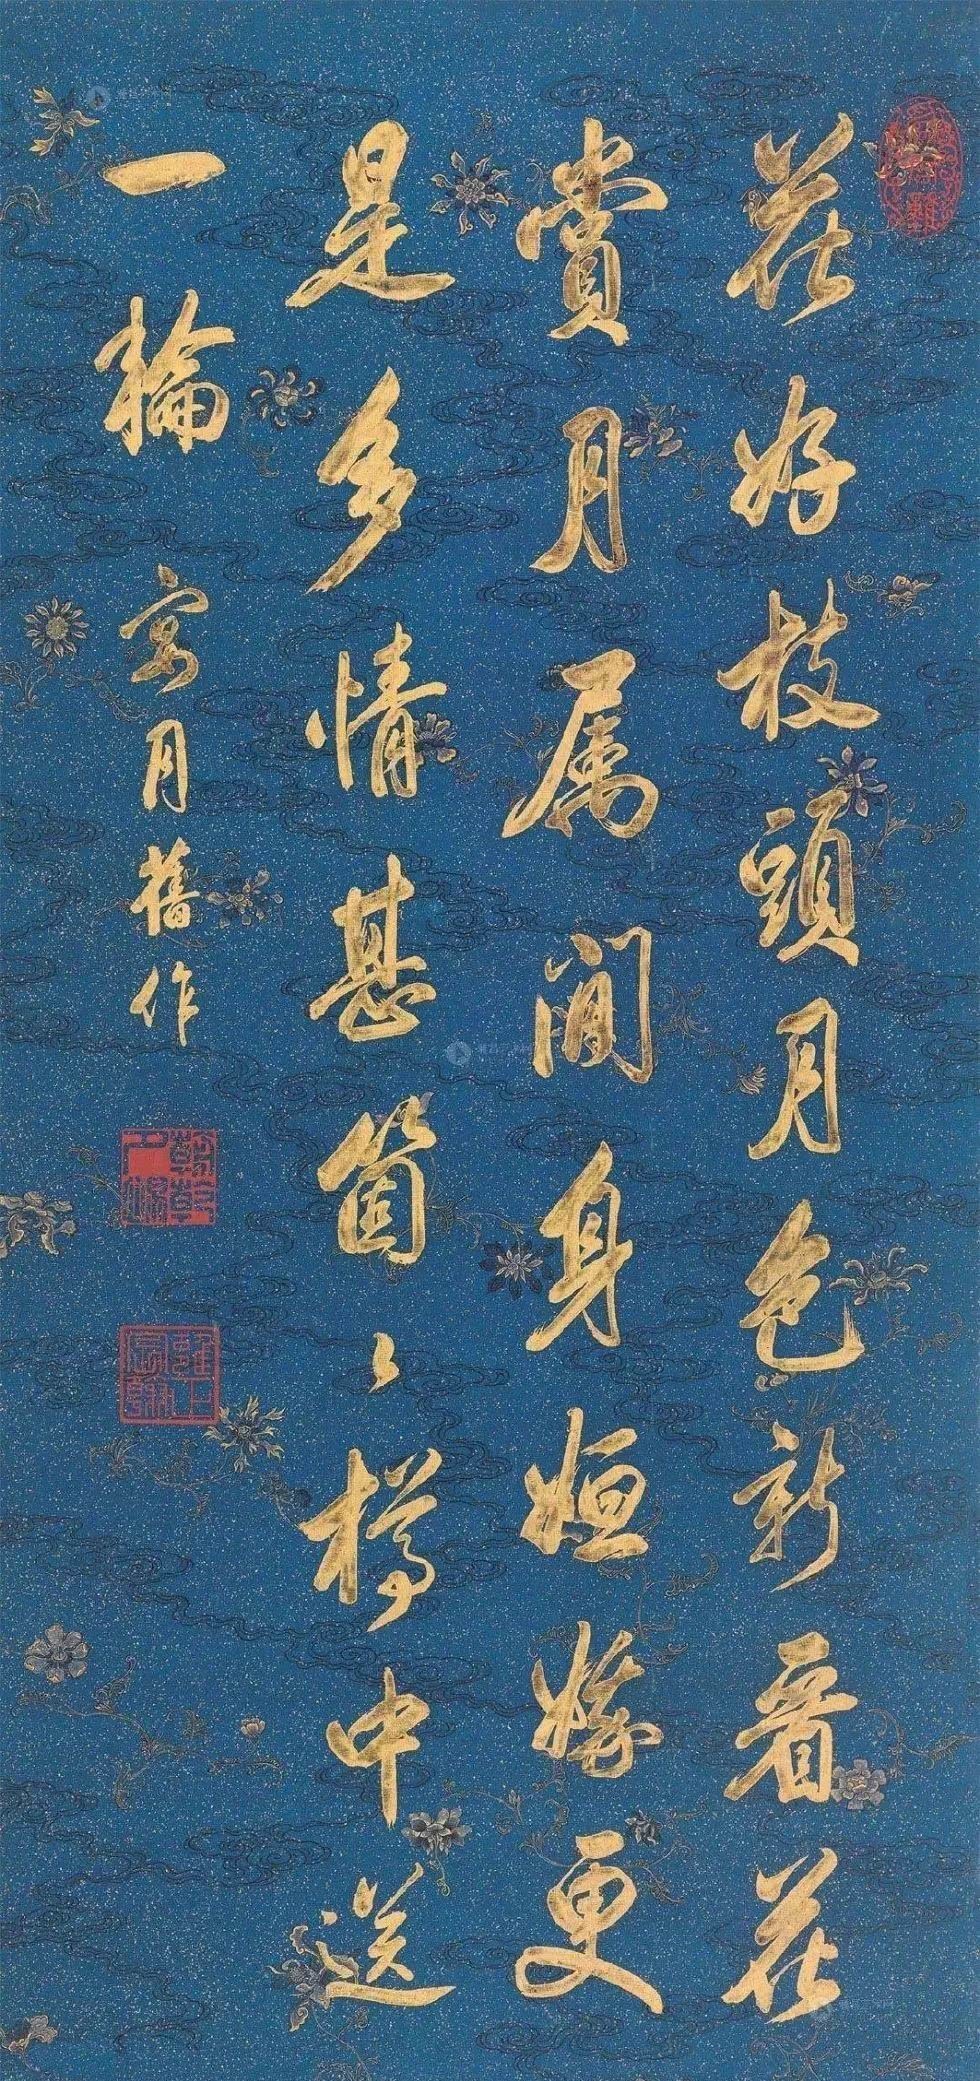 花好枝頭月色新看花
賞月属閒身姮娥更
是多情甚箇〻樽中送
一輪
寄月舊作